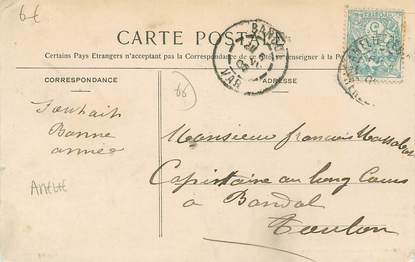 6€
CARTE POSTALE
Certains Pays Etrangers n'acceptant pas la Correspondance de se renseigner à la P
CORRESPONDANCE
ADRESSE
VAR
66
Souhait
Bonne
année
Amélie
Monsieur François
Capitaine au long Cours
à Bandol
Toulon